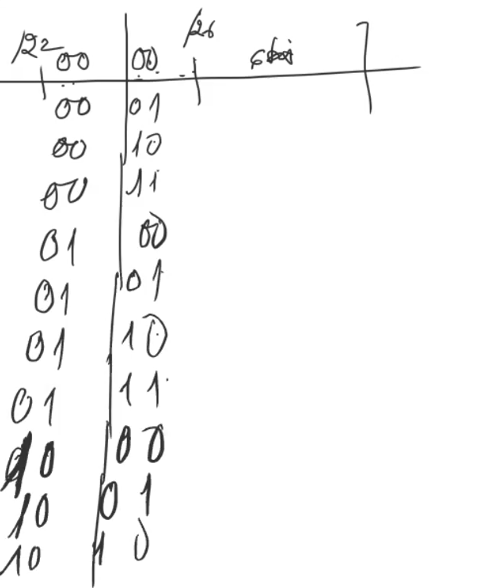 /22 00 00 /26 6bit
00 01
00 10
00 11
01 00
01 01
01 10
01 11
10 00
10 01
10 10